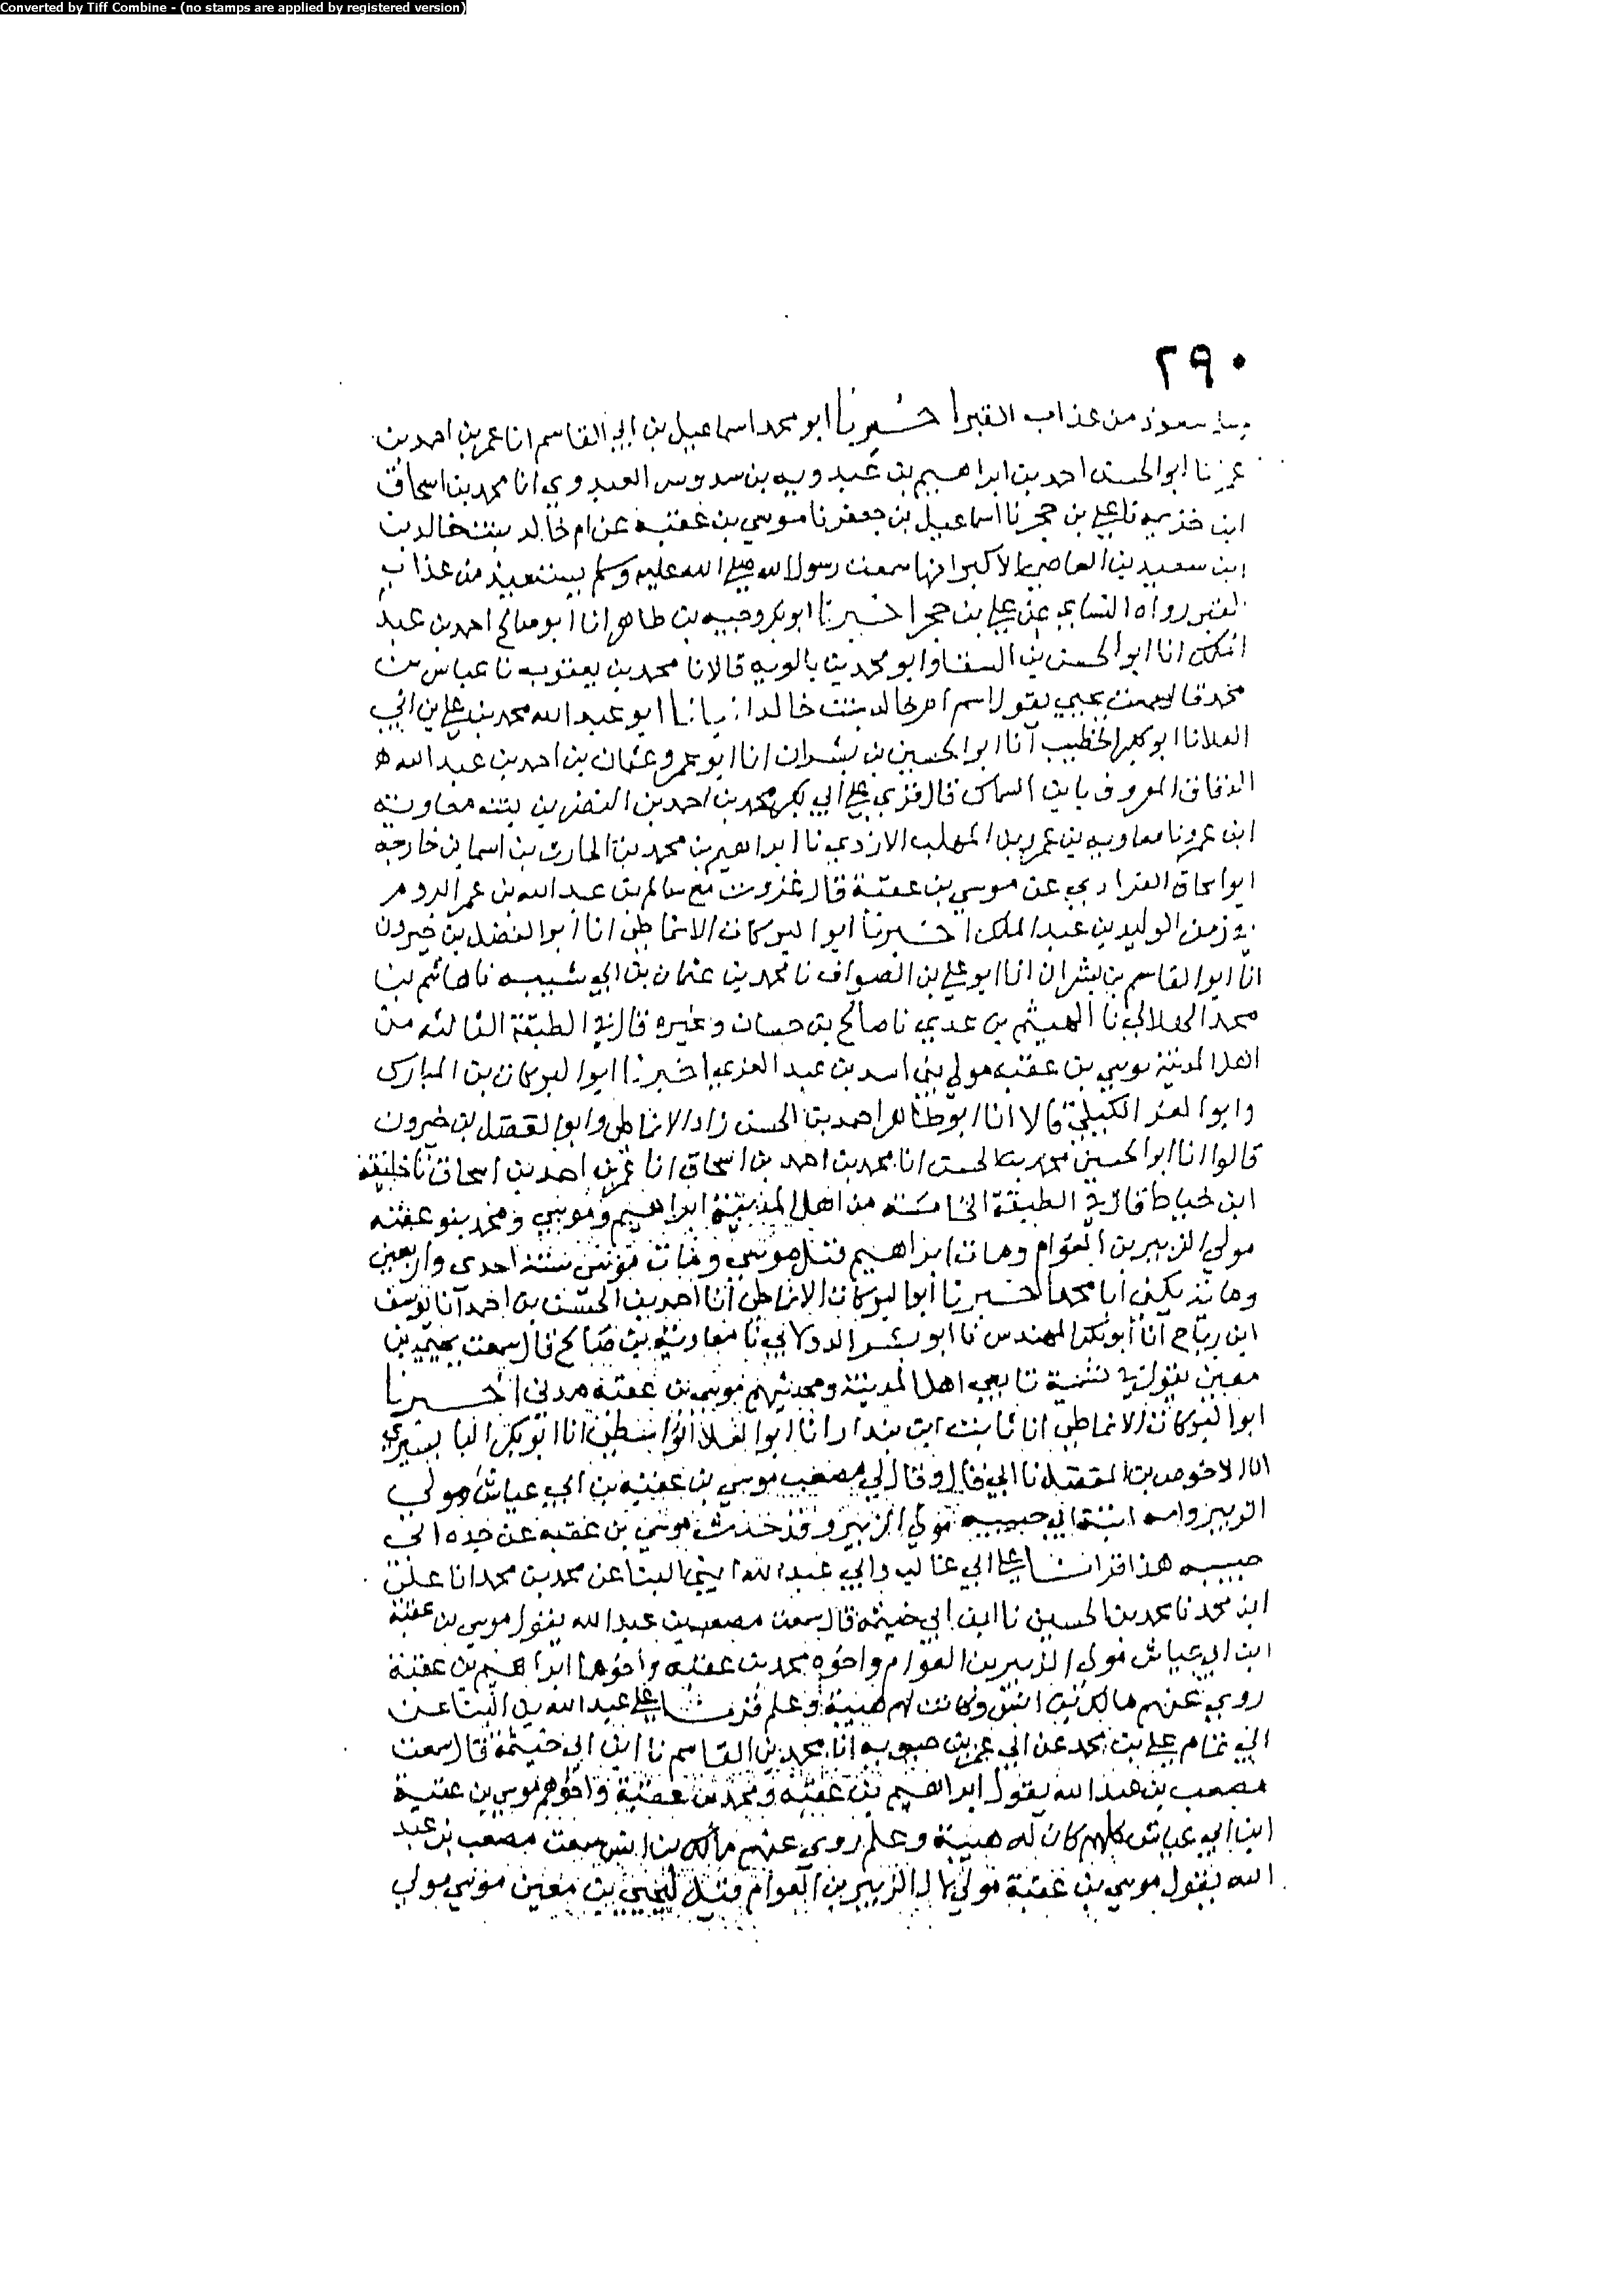 Converted by Tiff Combine - (no stamps are applied by registered version)
٢٩٠
من عذاب القبر اخبرنا ابو محمد اسماعيل بن ابي القاسم انا عمر بن احمد بن
عمر نا ابو الحسن احمد بن ابراهيم بن عبدويه بن سدوس العبدوي انا محمد بن اسحاق
ابن خزيمه نا علي بن حجر نا اسماعيل بن جعفر نا موسي بن عقبه عن ام خالد بنت خالد بن
ابن سعيد بن العاصي الاكبر انها سمعت رسول الله صلى الله عليه وسلم يستعيذ من عذاب
القبر رواه النساي عن علي بن حجر اخبرنا ابو بكر وجيه بن طاهر انا ابو صالح احمد بن عبد
الملك انا ابو الحسن بن السقا وابو محمد بن بالويه قالا نا محمد بن يعقوب نا عباس بن
محمد قال سمعت يحيي يقول اسم ام خالد بنت خالد انبانا ابو عبد الله محمد بن علي بن ابي
العلا نا ابو بكر الخطيب انا ابو الحسين بن بشران انا ابو عمرو عثمان بن احمد بن عبد الله
الدقاق المعروف بابن السماك قال قري علي ابي بكر محمد بن احمد بن النضر بن بنت معاوية
ابن عمرو نا معاويه بن عمرو بن المهلب الازدي نا ابراهيم بن محمد بن الحارث بن اسما بن خارجه
ابو اسحاق الفزاري عن موسي بن عقبة قال غزوت مع سالم بن عبد الله بن عمر الروم
في زمن الوليد بن عبد الملك اخبرنا ابو البركات الانماطي انا ابو الفضل بن خيرون
انا ابو القاسم بن بشران انا ابو علي بن الصواف نا محمد بن عثمان بن ابي شيبه نا هاشم بن
محمد الهلالي نا الهيثم بن عدي نا صالح بن حسان وغيره قال في الطبقة الثالثه من
اهل المدينة موسي بن عقبه مولي بني اسد بن عبد العزي اخبرنا ابو البركات بن المبارك
وابو العز الكيلي قالا انا ابو طاهر احمد بن الحسن زاد الانماطي وابو الفضل بن خيرون
قالوا انا ابو الحسين محمد بن الحسن انا محمد بن احمد بن اسحاق انا عمر بن احمد بن اسحاق نا خليفة
ابن خياط قال في الطبقة الخامسة من اهل المدينة ابراهيم وموسي ومحمد بنو عقبه
مولي الزبير بن العوام ومات ابراهيم قبل موسي ومات موسي سنة احدى واربعين
ومائة يكنى ابا محمد اخبرنا ابو البركات الانماطي انا احمد بن الحسن بن احمد انا يوسف
ابن رباح انا ابو بكر المهندس نا ابو بشر الدولابي نا معاوية بن صالح قال سمعت يحيي بن
معين يقول في تسمية تابعي اهل المدينة ومحدثيهم موسي بن عقبه مدني اخبرنا
ابو البركات الانماطي انا ثابت ابن بندار انا ابو العلا الواسطي انا ابو بكر البابسيري
انا الاحوص بن المفضل نا ابي قال وقال لي مصعب موسي بن عقبة بن ابي عياش مولي
الزبير وامه ابنة ابي حبيبه مولي الزبير وقد حدث موسي بن عقبه عن جده ابي
حبيبه هذا قرات علي ابي غالب وابي عبد الله ابني البنا عن محمد بن محمد انا علي
ابن محمد نا محمد بن الحسين نا ابن ابي خيثمه قال سمعت مصعب بن عبد الله يقول موسي بن عقبة
ابن ابي عياش مولي الزبير بن العوام واخوه محمد بن عقبه واخوهما ابراهيم بن عقبة
روي عنهم مالك بن انس وكانت لهم هيبة وعلم قرات علي عبد الله بن البنا عن
ابي تمام علي بن محمد عن ابي عمر بن حيويه انا محمد بن القاسم نا ابن ابي خيثمة قال سمعت
مصعب بن عبد الله يقول ابراهيم بن عقبه ومحمد بن عقبة واخوهم موسي بن عقبة
ابن ابي عياش كلهم كان له هيبة وعلم روي عنهم مالك بن انس سمعت مصعب بن عبد
الله يقول موسي بن عقبة مولي ال الزبير بن العوام قيل ليحيي بن معين موسي مولي